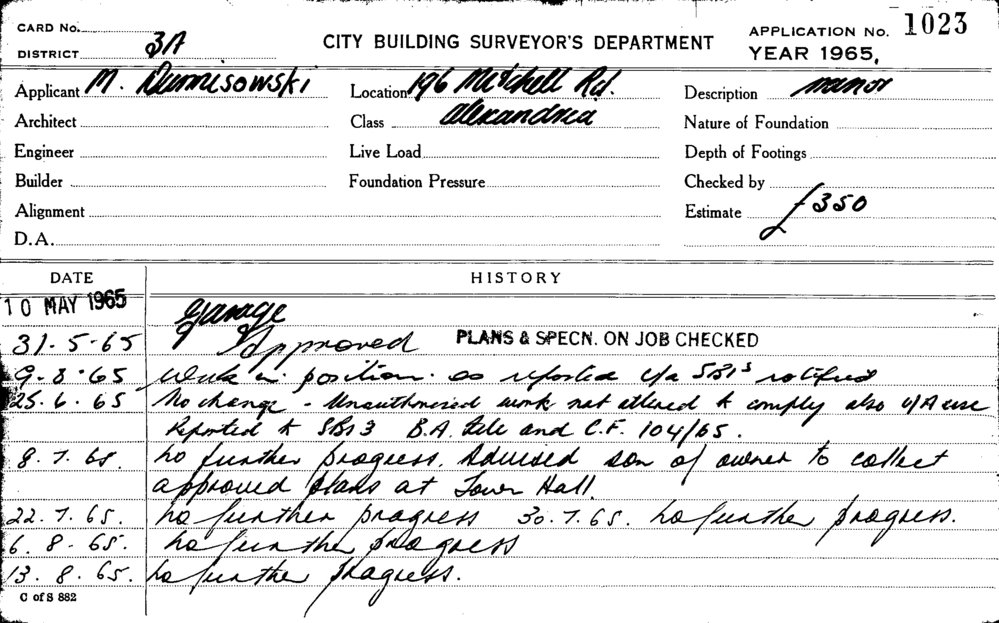 CARD No.
DISTRICT 3A
CITY BUILDING SURVEYOR'S DEPARTMENT
APPLICATION No. 1023
YEAR 1965,
Applicant M.
Location 196 Mitchell Rd.
Description minor
Architect
Class Alexandria
Nature of Foundation
Engineer
Live Load
Depth of Footings
Builder
Foundation Pressure
Checked by
Alignment
Estimate £350
D.A.
DATE
HISTORY
10 MAY 1965 Garage
31.5.65 Approved PLANS & SPECN. ON JOB CHECKED
65 Work in position. as reported
25.6.65 No change - Unauthorised work not altered to comply also U/A use
Reported to SBS 3 B.A. file and C.F. 104/65.
8.7.65. no further progress. Advised son of owner to collect
approved plans at Town Hall.
22.7.65. no further progress 30.7.65. no further progress.
6.8.65. no further progress
13.8.65. no further progress.
C of S 882